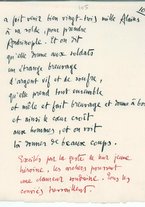 105
a fait venir bien vingt-trois mille Alains
à sa solde, pour prendre
Andrinople. Et on dit
qu'elle donne aux soldats
un étrange breuvage
d'argent vif et de soufre,
qu'elle prend tout ensemble
et mêle et fait breuvage et donne à boire
et ainsi le cœur croît
aux hommes, et on voit
là donner de beaux coups.
Excités par la geste de leur jeune
héroïne, les archers poussent
une clameur
conviés